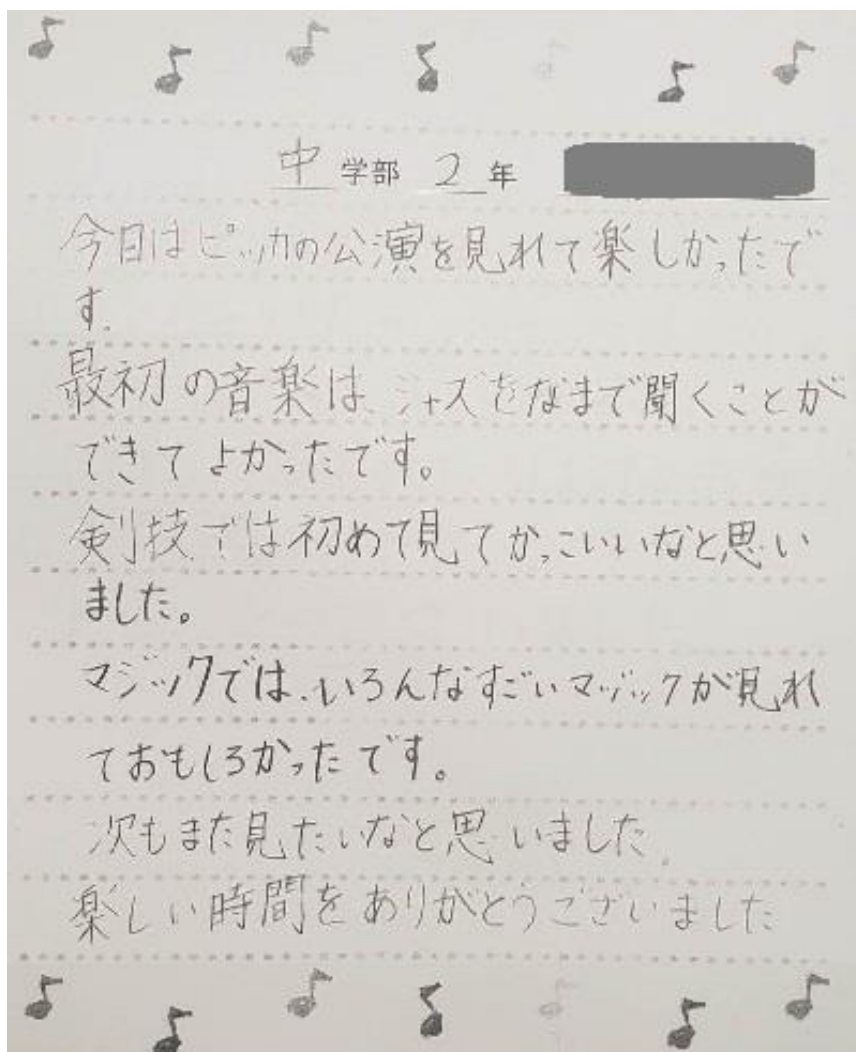 中学部 2年
今日はピッカの公演を見れて楽しかったで
す.
最初の音楽は、ジャズをなまで聞くことが
できてよかったです。
剣技では初めて見てかっこいいなと思い
ました。
マジックでは、いろんなすごいマジックが見れ
ておもしろかったです。
次もまた見たいなと思いました.
楽しい時間をありがとうございました